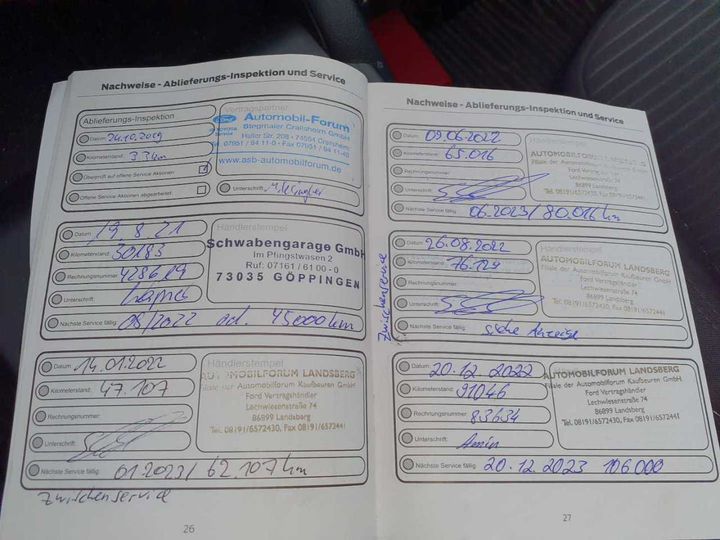 Nachweise - Ablieferungs-Inspektion und Service
Ablieferungs-Inspektion
Datum: 24.10.2019
Kilometerstand: 33 km
Überprüft auf offene Service Aktionen:
Offene Service Aktionen abgearbeitet:
Vertragspartner
Ford
Automobil-Forum
Stegmaier Crailsheim GmbH
Haller Str. 208 - 74564 Crailsheim
Tel. 07951 / 94 11-0 - Fax 07951 / 94 11-40
www.asb-automobilforum.de
Unterschrift:
Datum: 19.8.21
Kilometerstand: 30183
Rechnungsnummer: 428619
Unterschrift:
Nächste Service fällig: 08/2022 od. 45000 km
Händlerstempel
Schwabengarage GmbH
Im Pfingstwasen 2
Ruf: 07161 / 61 00 - 0
73035 GÖPPINGEN
Datum: 14.01.2022
Kilometerstand: 47.107
Rechnungsnummer:
Unterschrift:
Nächste Service fällig: 01.2023/62.107 km
Händlerstempel
AUTOMOBILFORUM LANDSBERG
Filiale der Automobilforum Kaufbeuren GmbH
Ford Vertragshändler
Lechwiesenstraße 74
86899 Landsberg
Tel. 08191/6572430, Fax 08191/6572441
Zwischenservice
26
Nachweise - Ablieferungs-Inspektion und Service
Datum: 09.06.2022
Kilometerstand: 65.016
Rechnungsnummer:
Unterschrift:
Nächste Service fällig: 06.2023/80.016 km
Händlerstempel
AUTOMOBILFORUM
Lechwiesenstraße 74
86899 Landsberg
Tel. 08191/6572430, Fax 08191/6572441
Zwischenservice
Datum: 26.08.2022
Kilometerstand: 76.129
Rechnungsnummer:
Unterschrift:
Nächste Service fällig: siehe Anzeige
Händlerstempel
AUTOMOBILFORUM LANDSBERG
Filiale der Automobilforum Kaufbeuren GmbH
Ford Vertragshändler
Lechwiesenstraße 74
86899 Landsberg
Tel. 08191/6572430, Fax 08191/6572441
Datum: 20.12.2022
Kilometerstand: 91046
Rechnungsnummer: 83634
Unterschrift:
Nächste Service fällig: 20.12.2023 106000
Händlerstempel
AUTOMOBILFORUM LANDSBERG
Filiale der Automobilforum Kaufbeuren GmbH
Ford Vertragshändler
Lechwiesenstraße 74
86899 Landsberg
Tel. 08191/6572430, Fax 08191/6572441
27